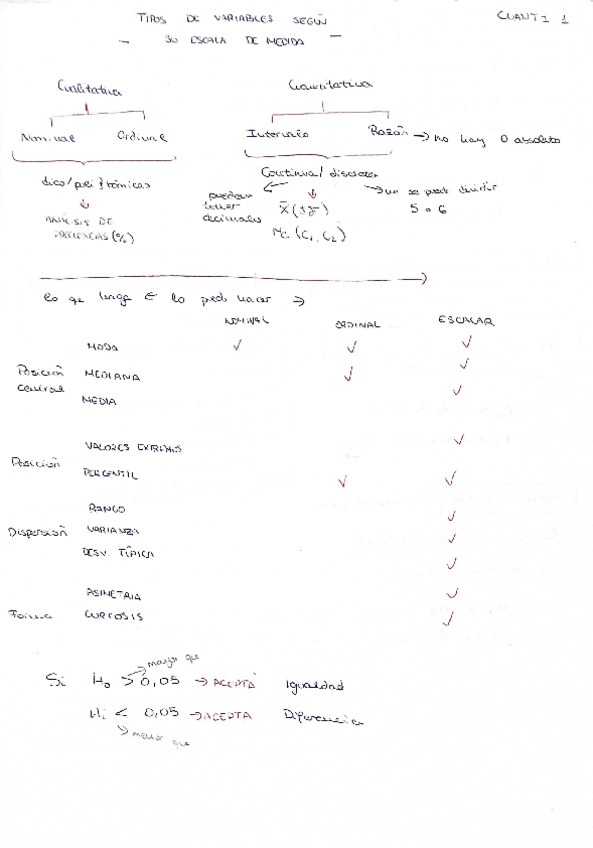 TIPOS DE VARIABLES SEGÚN CUANTI 1
SU ESCALA DE MEDIDA
Cualitativa Cuantitativa
Nominal Ordinal Intervalo Razón → no hay 0 absoluto
dico/poli tómicas Continua/discreta
pueden tener decimales no se puede dividir
X̄ (  ) 5 o 6
ANÁLISIS DE
FRECUENCIAS (%) Mc (C1, C2)
lo que tenga ∈ lo puedo hacer →
NOMINAL ORDINAL ESCALAR
MODA ✓ ✓ ✓
Posición central MEDIANA ✓ ✓
MEDIA ✓
VALORES EXTREMOS ✓
Posición PERCENTIL ✓ ✓
RANGO ✓
Dispersión VARIANZA ✓
DESV. TÍPICA ✓
ASIMETRIA ✓
Forma CURTOSIS ✓
mayor que
Si H0 > 0,05 → ACEPTA Igualdad
Hi < 0,05 → ACEPTA Diferencia
menor que